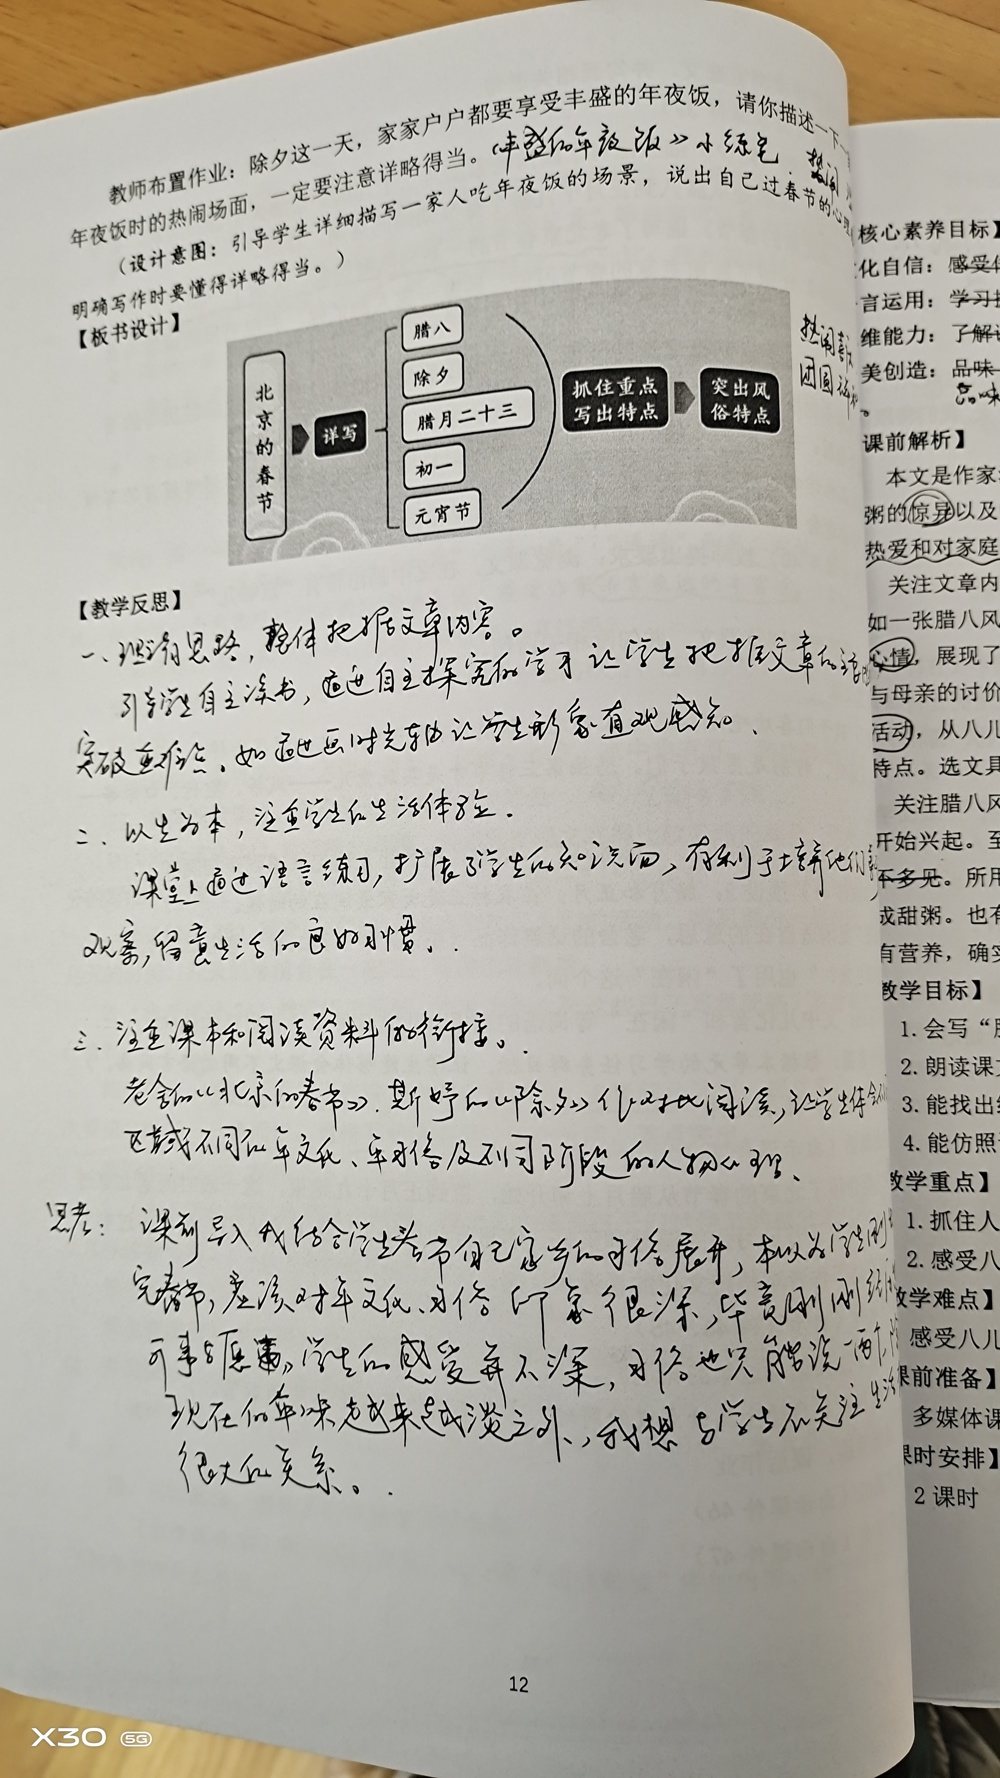 教师布置作业：除夕这一天，家家户户都要享受丰盛的年夜饭，请你描述一下
年夜饭时的热闹场面，一定要注意详略得当。《丰盛的年夜饭》小练笔
（设计意图：引导学生详细描写一家人吃年夜饭的场景，说出自己过春节的心理
明确写作时要懂得详略得当。）
【板书设计】
北京的春节
详写
腊八
除夕
腊月二十三
初一
元宵节
抓住重点
写出特点
突出风
俗特点
热闹喜
团圆
【教学反思】
一、理清思路，整体把握文章内容。
引导学生自主读书，通过自主探究的学习让学生把握文章的
突破重难点。如通过画时光轴让学生形象直观感知。
二、以生为本，注重学生的生活体验。
课堂上通过语言练习，扩展了学生的知识面，有利于培养他们
观察，留意生活的良好习惯。
三、注重课本和阅读资料的衔接。
老舍的《北京的春节》、斯妤的《除夕》作对比阅读，让学生体会
区域不同的年文化、年习俗及不同阶段的人物心理。
思考：课前导入我结合学生春节自己家乡的习俗展开，本以为学生刚
完春节，应该对年文化、习俗印象很深，毕竟刚刚经
可事与愿违，学生的感受并不深，习俗也只能说一两
现在的年味越来越淡之外，我想与学生不关注生活
很大的关系。
12
X30 5G
核心素养目标】
化自信：感受
言运用：学习
维能力：了解
美创造：品味
品味
课前解析】
本文是作家
粥的惊异以及
热爱和对家庭
关注文章内
如一张腊八风
心情，展现了
与母亲的讨价
活动，从八儿
特点。选文具
关注腊八风
开始兴起。至
不多见。所用
成甜粥。也有
有营养，确实
教学目标】
1.会写“
2.朗读课
3.能找出
4.能仿照
教学重点】
1.抓住人
2.感受八
教学难点】
感受八儿
课前准备】
多媒体课
课时安排】
2课时